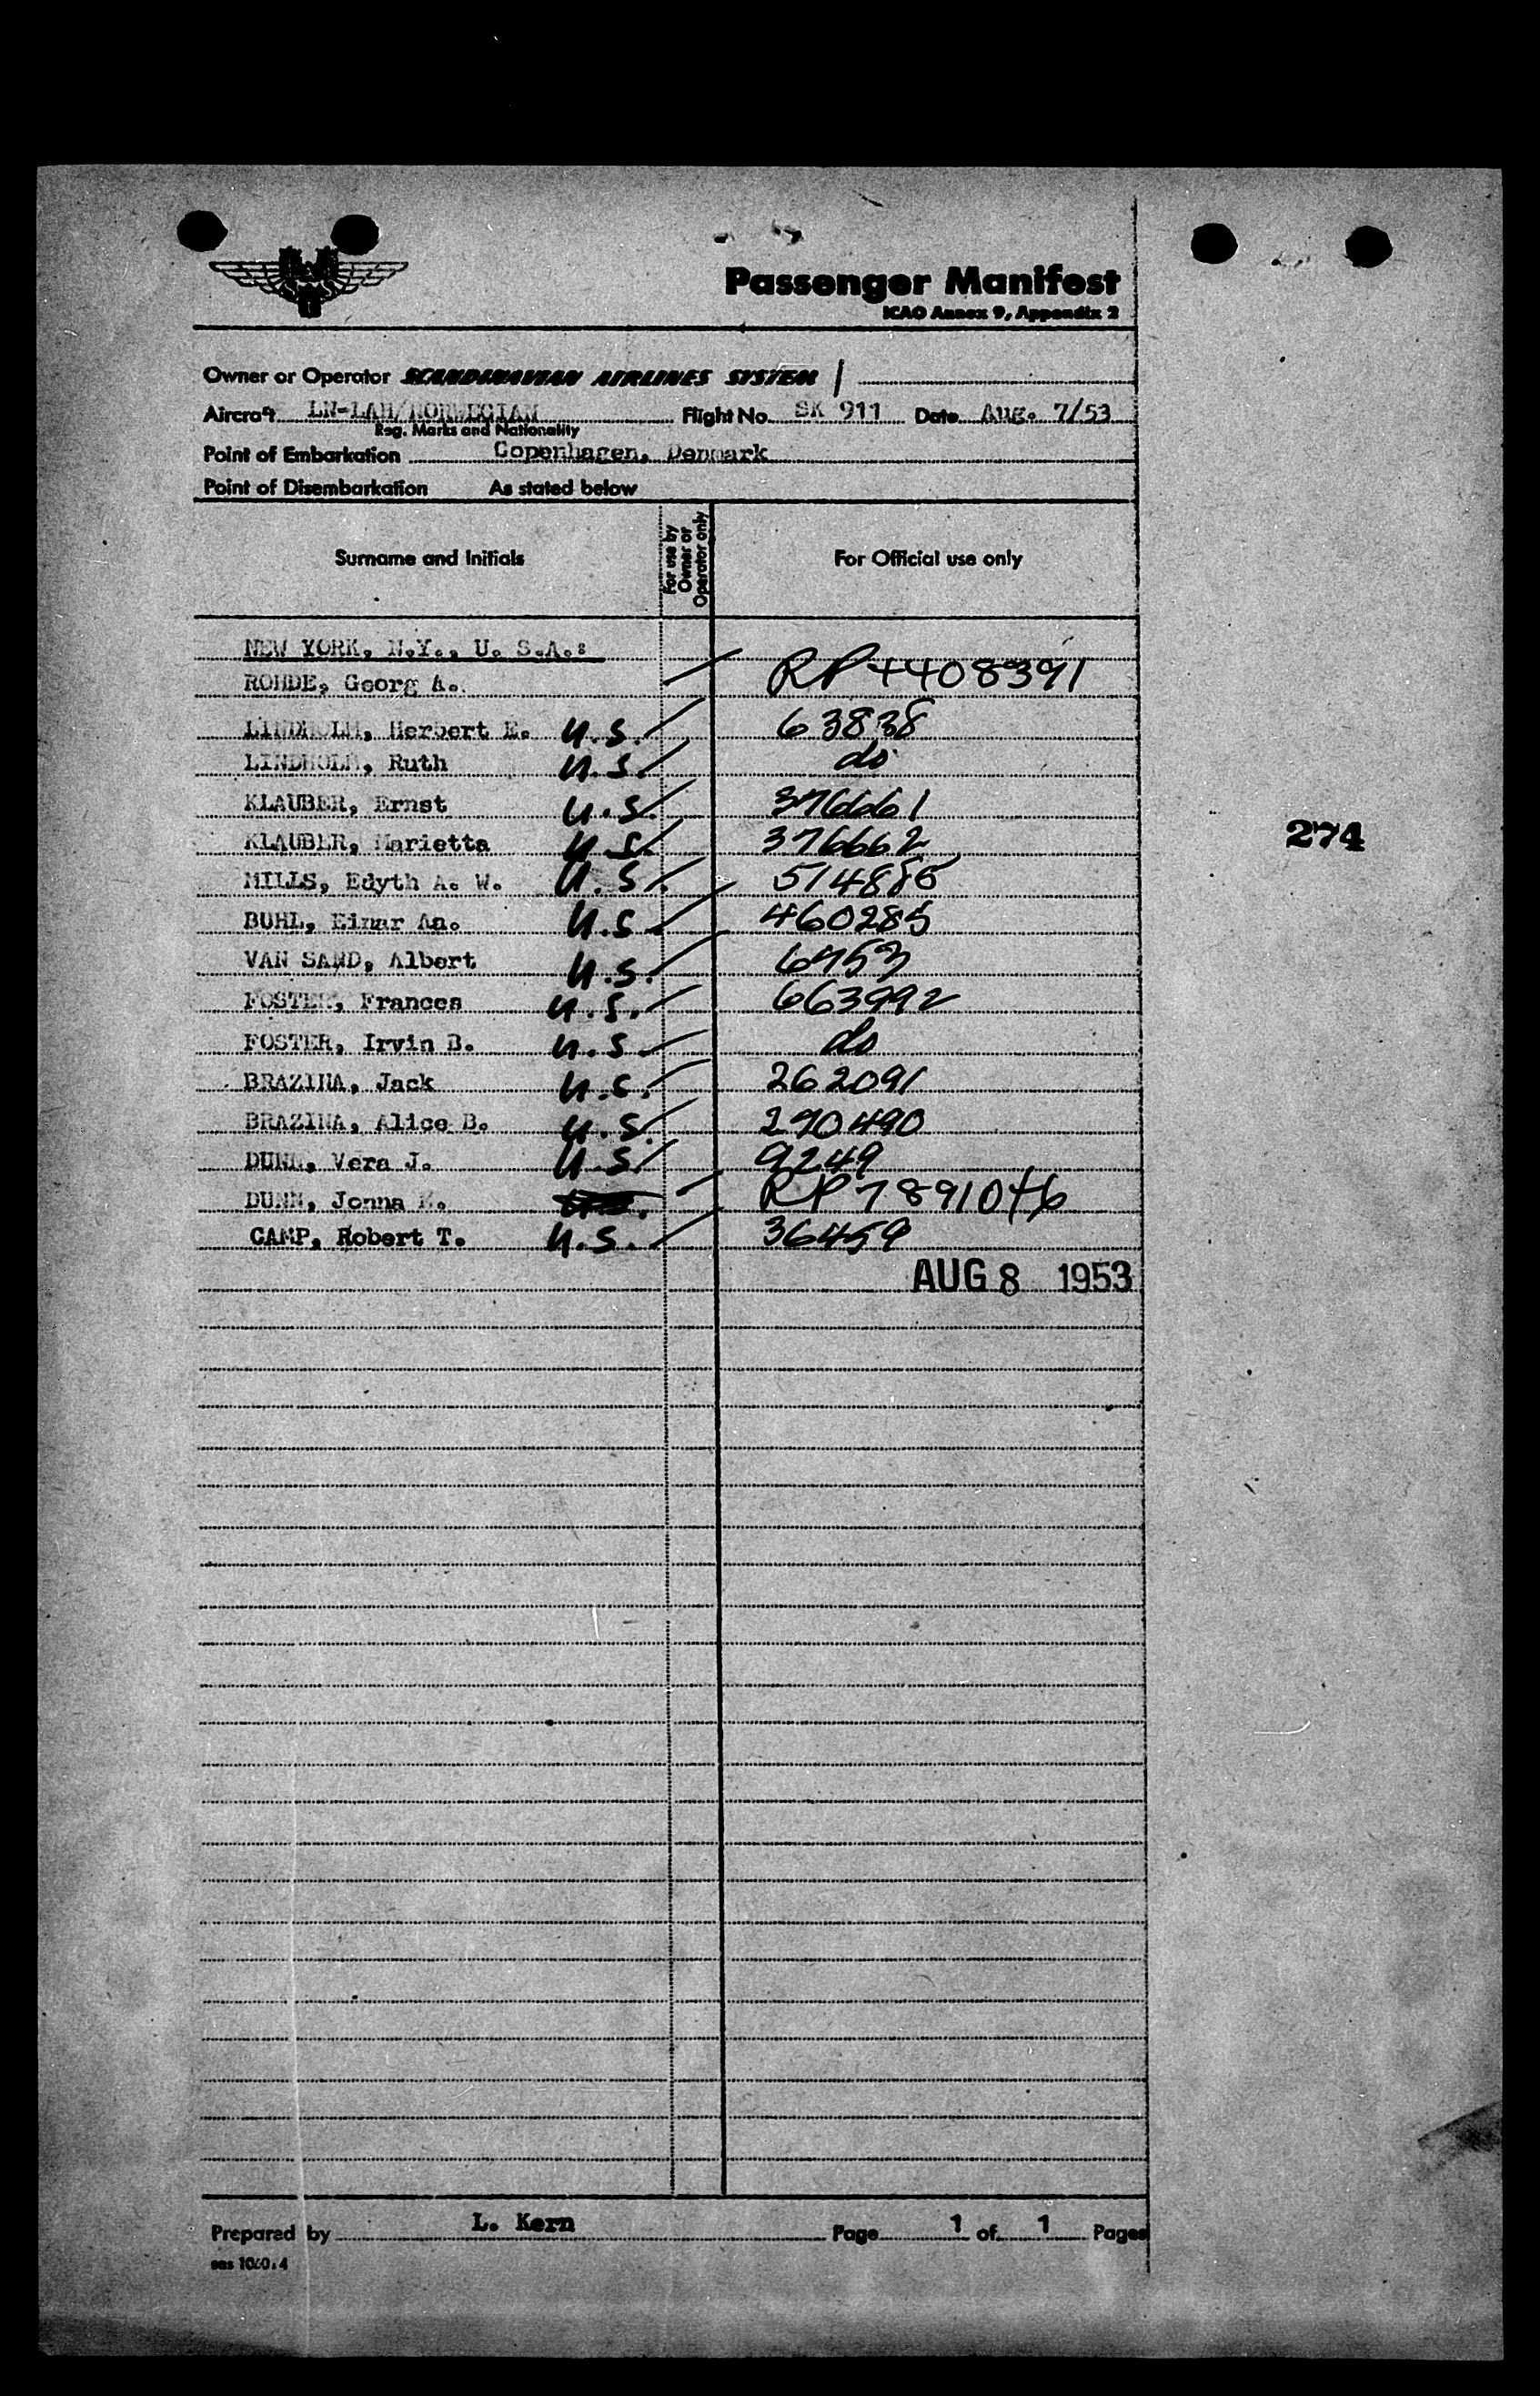 Passenger Manifest
ICAO Annex 9, Appendix 2
Owner or Operator SCANDINAVIAN AIRLINES SYSTEM
Aircraft LN-LAH/NORWEGIAN Flight No. SK 911 Date Aug. 7/53
Reg. Marks and Nationality
Point of Embarkation Copenhagen, Denmark
Point of Disembarkation As stated below
Surname and Initials For use by Owner or Operator only For Official use only
NEW YORK, N.Y., U. S.A.:
ROHDE, Georg A. RP 4408391
LINDHOLM, Herbert E. U.S. 63838
LINDHOLM, Ruth U.S. do
KLAUBER, Ernst U.S. 376661
KLAUBER, Marietta U.S. 376662
274
MILLS, Edyth A. W. U.S. 514886
BUHL, Einar Aa. U.S. 460285
VAN SAND, Albert U.S. 6753
FOSTER, Frances U.S. 663992
FOSTER, Irvin B. U.S. do
BRAZINA, Jack U.S. 262091
BRAZINA, Alice B. U.S. 290490
DUNN, Vera J. U.S. 9249
DUNN, Jonna RP 7891046
CAMP, Robert T. U.S. 36459
AUG 8 1953
Prepared by L. Kern Page 1 of 1 Pages
sas 1060:4